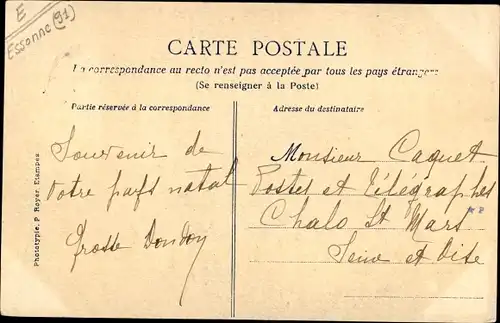 E
Essonne (91)
CARTE POSTALE
La correspondance au recto n'est pas acceptée par tous les pays étrangers
(Se renseigner à la Poste)
Partie réservée à la correspondance
Adresse du destinataire
Souvenir de
votre pays natal
Grosse Doudou
Monsieur Caquet
Postes et Télégraphes
Chalo St Mars
Seine et Oise
Phototypie. P. Royer, Etampes